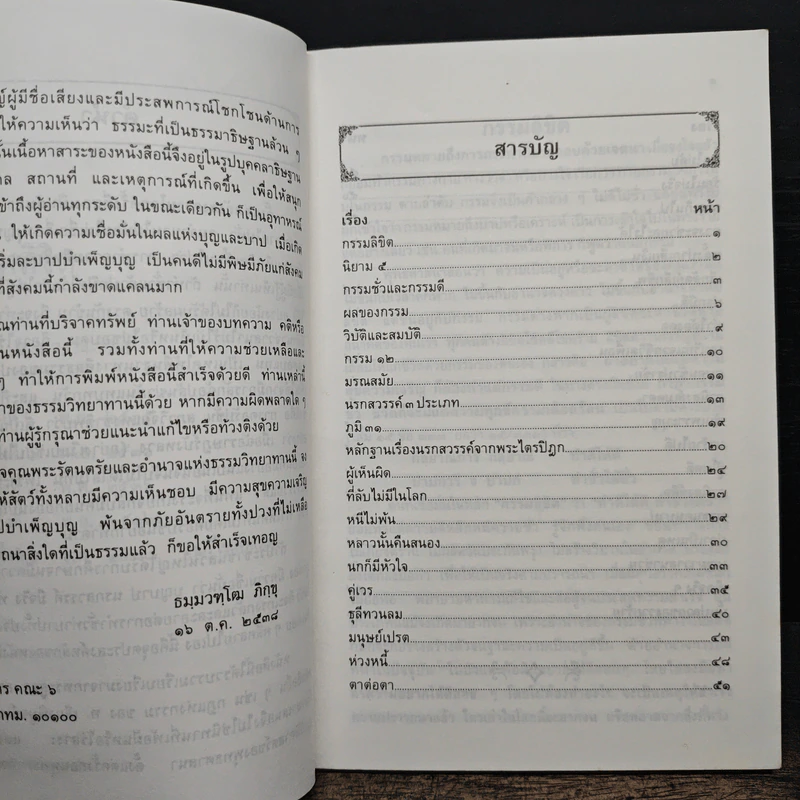 ผู้มีชื่อเสียงและมีประสพการณ์โชกโชนด้านการ
ให้ความเห็นว่า ธรรมะที่เป็นธรรมาธิษฐานล้วน ๆ
นั้นเนื้อหาสาระของหนังสือนี้จึงอยู่ในรูปบุคคลาธิษฐาน
สถานที่ และเหตุการณ์ที่เกิดขึ้น เพื่อให้สนุก
ข้าถึงผู้อ่านทุกระดับ ในขณะเดียวกัน ก็เป็นอุทาหรณ์
ให้เกิดความเชื่อมั่นในผลแห่งบุญและบาป เมื่อเกิด
ริ่มละบาปบำเพ็ญบุญ เป็นคนดีไม่มีพิษมีภัยแก่สังคม
ที่สังคมนี้กำลังขาดแคลนมาก
ณท่านที่บริจาคทรัพย์ ท่านเจ้าของบทความ คติหรือ
นหนังสือนี้ รวมทั้งท่านที่ให้ความช่วยเหลือและ
ๆ ทำให้การพิมพ์หนังสือนี้สำเร็จด้วยดี ท่านเหล่านี้
าของธรรมวิทยาทานนี้ด้วย หากมีความผิดพลาดใด ๆ
ท่านผู้รู้กรุณาช่วยแนะนำแก้ไขหรือท้วงติงด้วย
จคุณพระรัตนตรัยและอำนาจแห่งธรรมวิทยาทานนี้ จง
ห้สัตว์ทั้งหลายมีความเห็นชอบ มีความสุขความเจริญ
ปบำเพ็ญบุญ พ้นจากภัยอันตรายทั้งปวงที่ไม่เหลือ
ถนาสิ่งใดที่เป็นธรรมแล้ว ก็ขอให้สำเร็จเทอญ
ธมฺมวฑฺโฒ ภิกฺขุ
๑๖ ต.ค. ๒๕๓๘
ร คณะ ๖
กทม. ๑๐๑๐๐
สารบัญ
เรื่อง หน้า
กรรมลิขิต ๑
นิยาม ๕ ๒
กรรมชั่วและกรรมดี ๓
ผลของกรรม ๖
วิบัติและสมบัติ ๙
กรรม ๑๒ ๑๐
มรณสมัย ๑๑
นรกสวรรค์ ๓ ประเภท ๑๓
ภูมิ ๓๑ ๑๙
หลักฐานเรื่องนรกสวรรค์จากพระไตรปิฎก ๒๐
ผู้เห็นผิด ๒๔
ที่ลับไม่มีในโลก ๒๗
หนีไม่พ้น ๒๙
หลาวนั้นคืนสนอง ๓๐
นกก็มีหัวใจ ๓๓
คู่เวร ๓๕
ธุลีทวนลม ๔๐
มนุษย์เปรต ๔๓
ห่วงหนี้ ๔๘
ตาต่อตา ๕๑